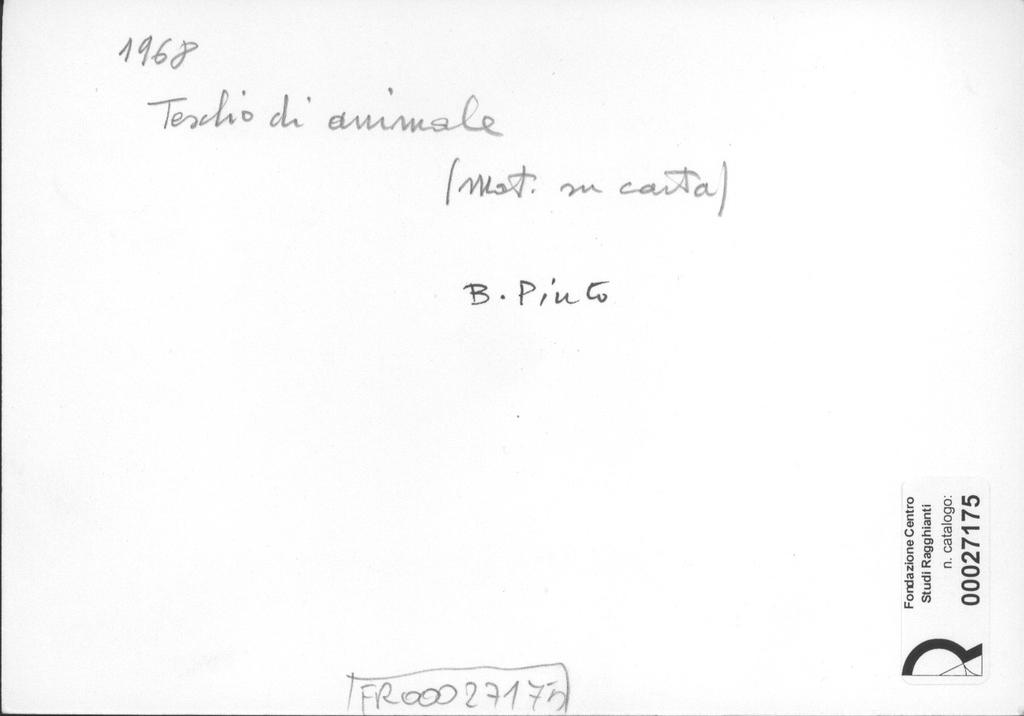 1968
Teschio di animale
(Mat. su carta)
B. Pinto
Fondazione Centro
Studi Ragghianti
n. catalogo:
00027175
FR00027175